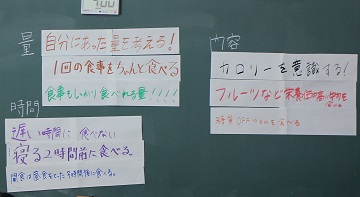 量
自分にあった量を考える!
1回の食事をちゃんと食べる
食事もしっかり食べれる量!!!!
時間
遅い時間に食べない
寝る2時間前に食べる。
間食は昼食をとった3時間後に食べる。
内容
カロリーを意識する!
フルーツなど栄養価の高い物を
糖質OFFのものを食べる